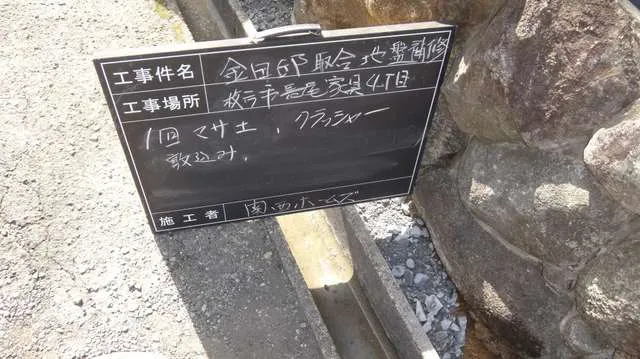 工事件名 金田邸取合地盤補修
工事場所 枚方市長尾家具4丁目
1回マサ土、クラッシャー
敷込み、
施工者 関西ホームズ